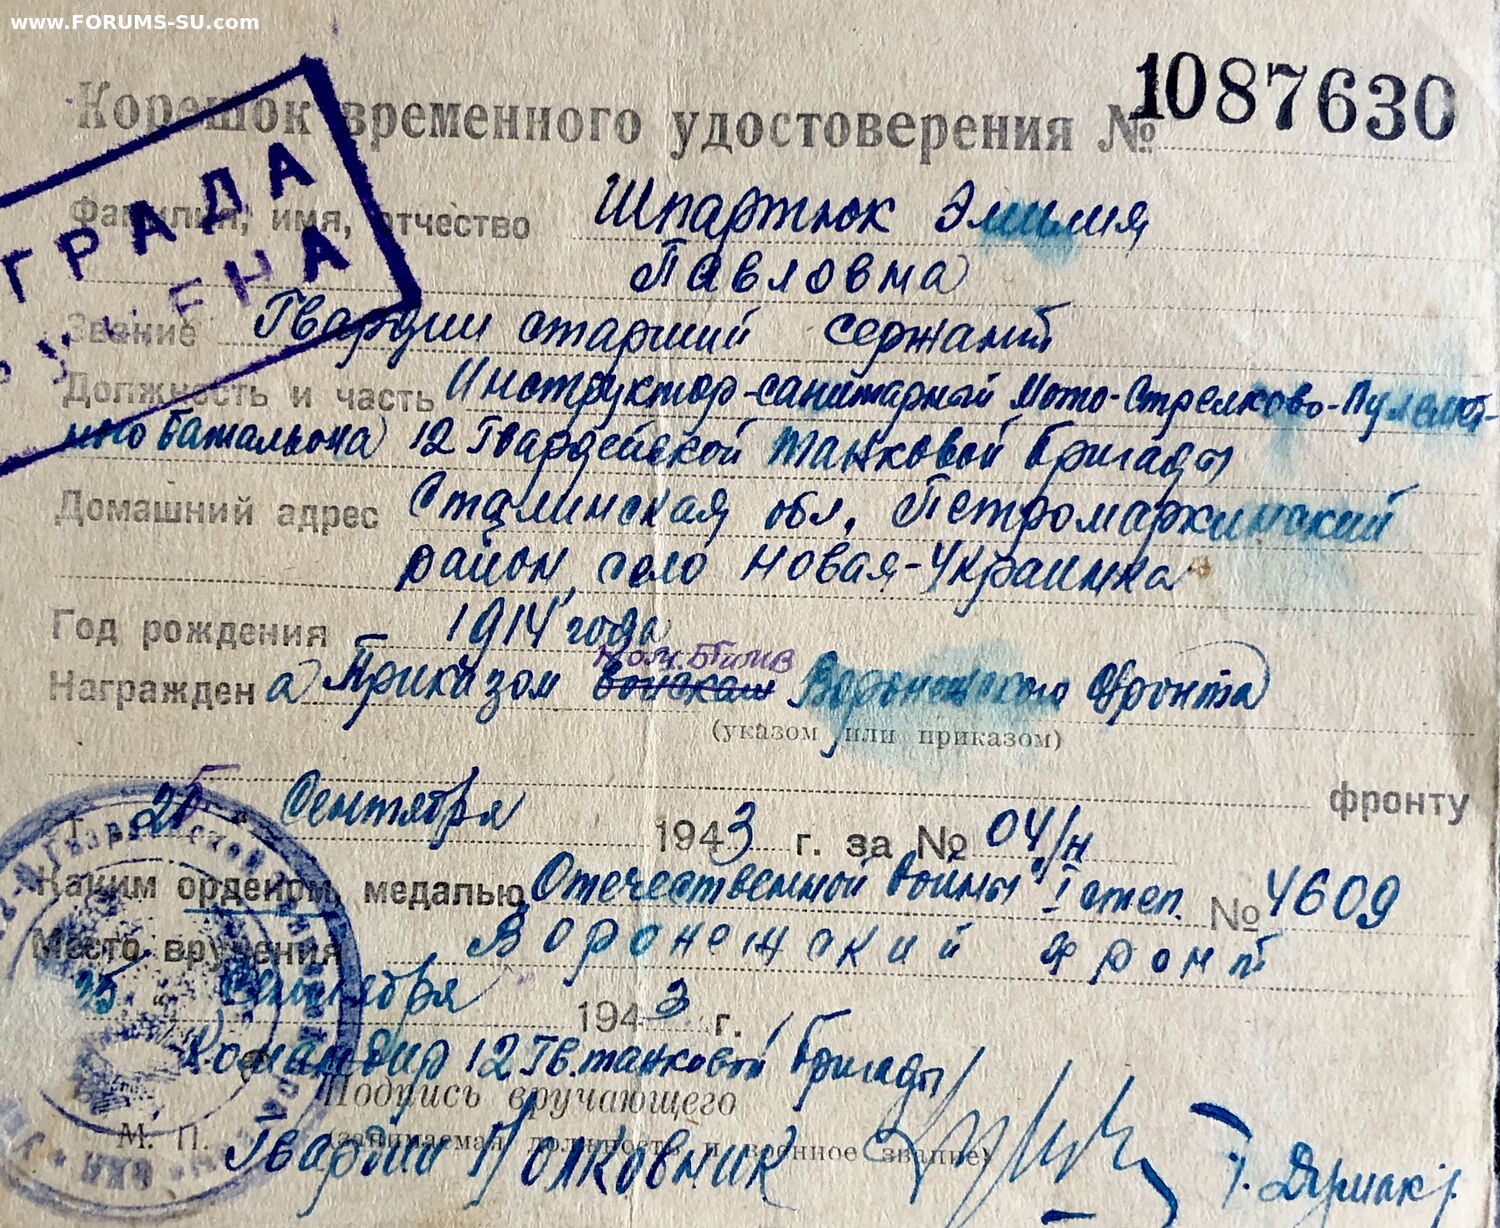 www.FORUMS-SU.com
Корешок временного удостоверения № 1087630
НАГРАДА
ВРУЧЕНА
Фамилия, имя, отчество Шпартюк Эмилия
Павловна
Звание Гвардии старший сержант
Должность и часть Инструктор-санитарный Мото-Стрелково-Пулемёт-
ного батальона 12 Гвардейской танковой бригады
Домашний адрес Сталинская обл. Петромархинский
район, село Новая-Украинка
Год рождения 1914 года
Награжден а Приказом войскам Воронежского Фронта
(указом или приказом)
фронту
Сентября 1943 г. за № 04/н
Каким орденом, медалью "Отечественной войны" I степ. № 4609
Место вручения Воронежский фронт
25 Сентября 1943 г.
Командир 12 Гв. танковой бригады
Подпись вручающего
М. П. (занимаемая должность и военное звание)
Гвардии Полковник